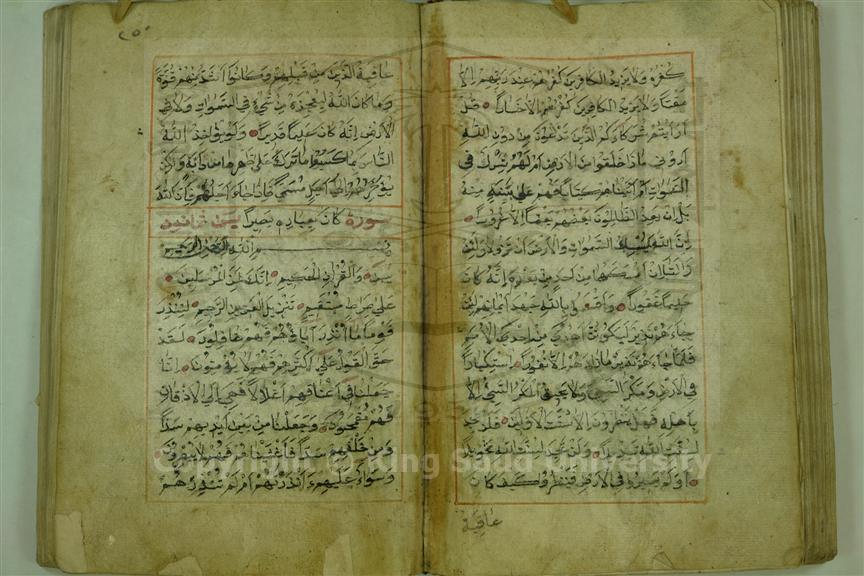 كفره ولا يزيد الكافرين كفرهم عند ربهم الا
مقتا ولا يزيد الكافرين كفرهم الا خسارا قل
ارايتم شركاءكم الذين تدعون من دون الله
اروني ماذا خلقوا من الارض ام لهم شرك في
السموات ام اتيناهم كتابا فهم على بينة منه
بل ان يعد الظالمون بعضهم بعضا الا غرورا
ان الله يمسك السموات والارض ان تزولا ولئن
زالتا ان امسكهما من احد من بعده انه كان
حليما غفورا واقسموا بالله جهد ايمانهم لئن
جاءهم نذير ليكونن اهدى من احدى الامم
فلما جاءهم نذير ما زادهم الا نفورا استكبارا
في الارض ومكر السيئ ولا يحيق المكر السيئ الا
باهله فهل ينظرون الا سنت الاولين فلن تجد
لسنت الله تبديلا ولن تجد لسنت الله تحويلا
اولم يسيروا في الارض فينظروا كيف كان
عاقبة
٢٥٠
عاقبة الذين من قبلهم وكانوا اشد منهم قوة
وما كان الله ليعجزه من شيء في السموات ولا في
الارض انه كان عليما قديرا ولو يؤاخذ الله
الناس بما كسبوا ما ترك على ظهرها من دابة ولكن
يؤخرهم الى اجل مسمى فاذا جاء اجلهم فان الله
سورة كان بعباده بصيرا يس ثمانون
بسم الله الرحمن الرحيم
يس والقران الحكيم انك لمن المرسلين
على صراط مستقيم تنزيل العزيز الرحيم لتنذر
قوما ما انذر اباؤهم فهم غافلون لقد
حق القول على اكثرهم فهم لا يؤمنون انا
جعلنا في اعناقهم اغلالا فهي الى الاذقان
فهم مقمحون وجعلنا من بين ايديهم سدا
ومن خلفهم سدا فاغشيناهم فهم لا يبصرون
وسواء عليهم ءانذرتهم ام لم تنذرهم
Copyright © King Saud University